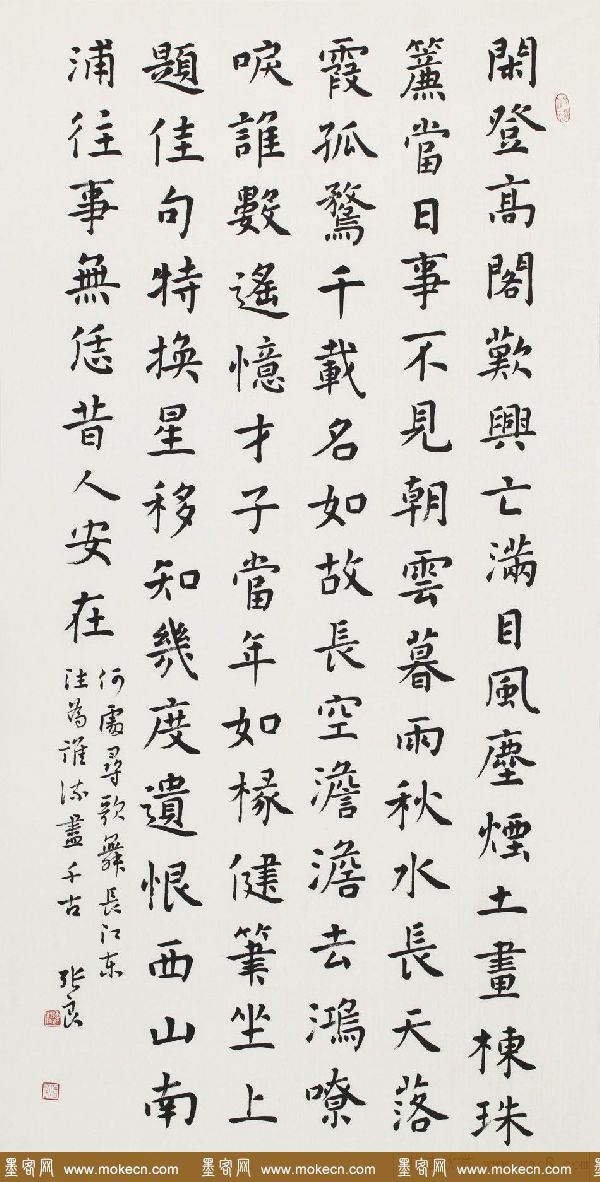 閑登高閣歎興亡滿目風塵煙土畫棟珠
簾當日事不見朝雲暮雨秋水長天落
霞孤鶩千載名如故長空澹澹去鴻嘹
唳誰數遙憶才子當年如椽健筆坐上
題佳句特換星移知幾度遺恨西山南
浦往事無恁昔人安在
何處尋歌舞長江東
注為誰流盡千古 張良
墨客网 www.mokecn.com 墨客网 www.mokecn.com 墨客网 www.mokecn.com